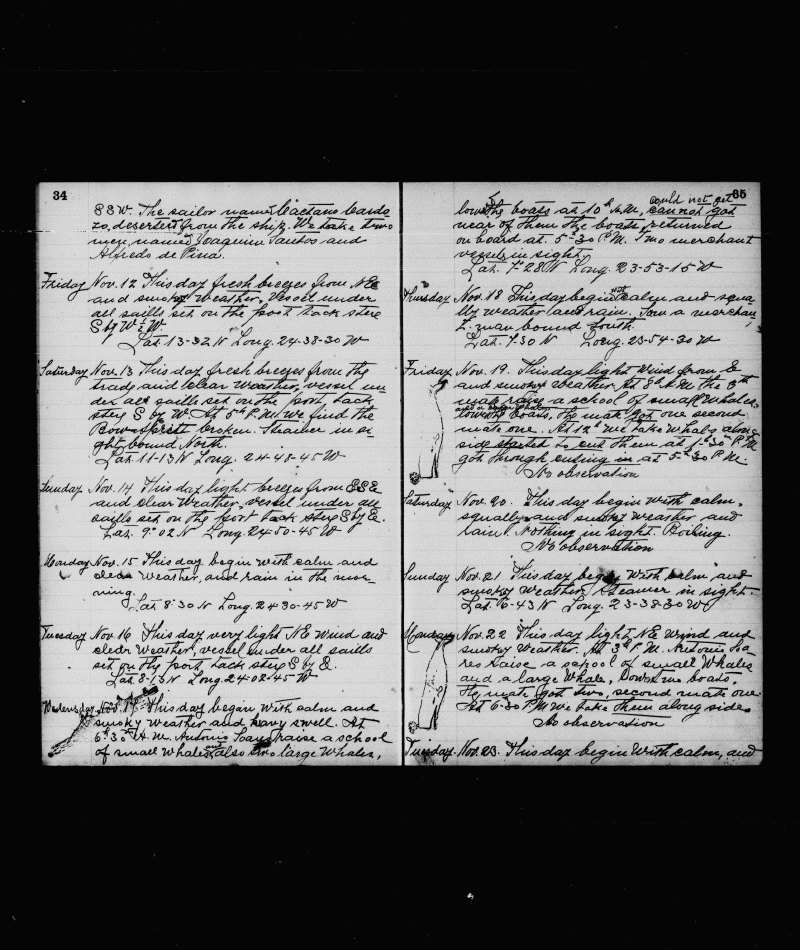 34
SSW. The sailor named Caetano Cardo
zo, deserted from the ship. We take two
men named Joaquim Santos and
Alfredo de Pina.
Friday Nov. 12 This day fresh breezes from NE
and smoky weather. Vessel under
all saills set on the port tack stere
S by W ½ W.
Lat. 13-32 N Long. 24-38-30 W
Saturday Nov. 13 This day fresh breezes from the
trady and clear weather, vessel un-
der all saills set on the port tack
stere S by W. At 5h P.M. we find the
Bow Spreet broken. Steamer in si-
ght bound North.
Lat. 11-13 N Long. 24-48-45 W
Sunday Nov. 14 This day light breezes from ESE
and clear weather, vessel under all
saills set on the port tack stere S by E.
Lat. 9-02 N Long 24-50-45 W
Monday Nov. 15 This day begin with calm and
clear weather, and rain in the mor-
ning.
Lat 8-30 N Long 24-30-45 W
Tuesday Nov. 16 This day very light NE wind and
clear weather, vessel under all saills
set on the port tack stere S by E.
Lat. 8-13 N Long. 24-02-45 W
Wednesday Nov. 17 This day began with calm and
smoky weather and navy swell. At
6h 30 A.M. Antonio Soares raise a school
of small whales, and also two large whales,
35
lower the boats at 10h A.M, could not get cannot got
near of them the boats returned
on board at 5h 30 P.M. Two merchant
vessels in sight.
Lat. 7-28 N Long. 23-53-15 W
Thursday Nov. 18 This day begin with calm and squa-
lly weather and rain. Saw a merchan
t man bound south.
Lat. 7-30 N Long. 23-54-30 W
Friday Nov. 19. This day light wind from E
and smoky weather At 8h A.M the 3th
mate raise a school of small whales
lower the boats, the mate got one second
mate one. At 12h we take whales along
side started to cut them at 1h 30 P.M
got through cuting in at 5h 30 P.M.
No observation
Saturday Nov. 20. This day begin with calm.
squally and smoky weather and
rain. Nothing in sight. Boiling.
No observation
Sunday Nov. 21 This day begin with calm and
smoky weather, steamer in sight.
Lat. 6-43 N Long. 23-38-30 W
Monday Nov. 22 This day light NE wind and
smoky weather. At 3h P.M. Antonio Soa
res raise a school of small whales
and a large whale, lower two boats,
the mate got two, second mate one
At 6-30 P.M we take them along side.
No observation
Tuesday Nov. 23. This day begin with calm, and